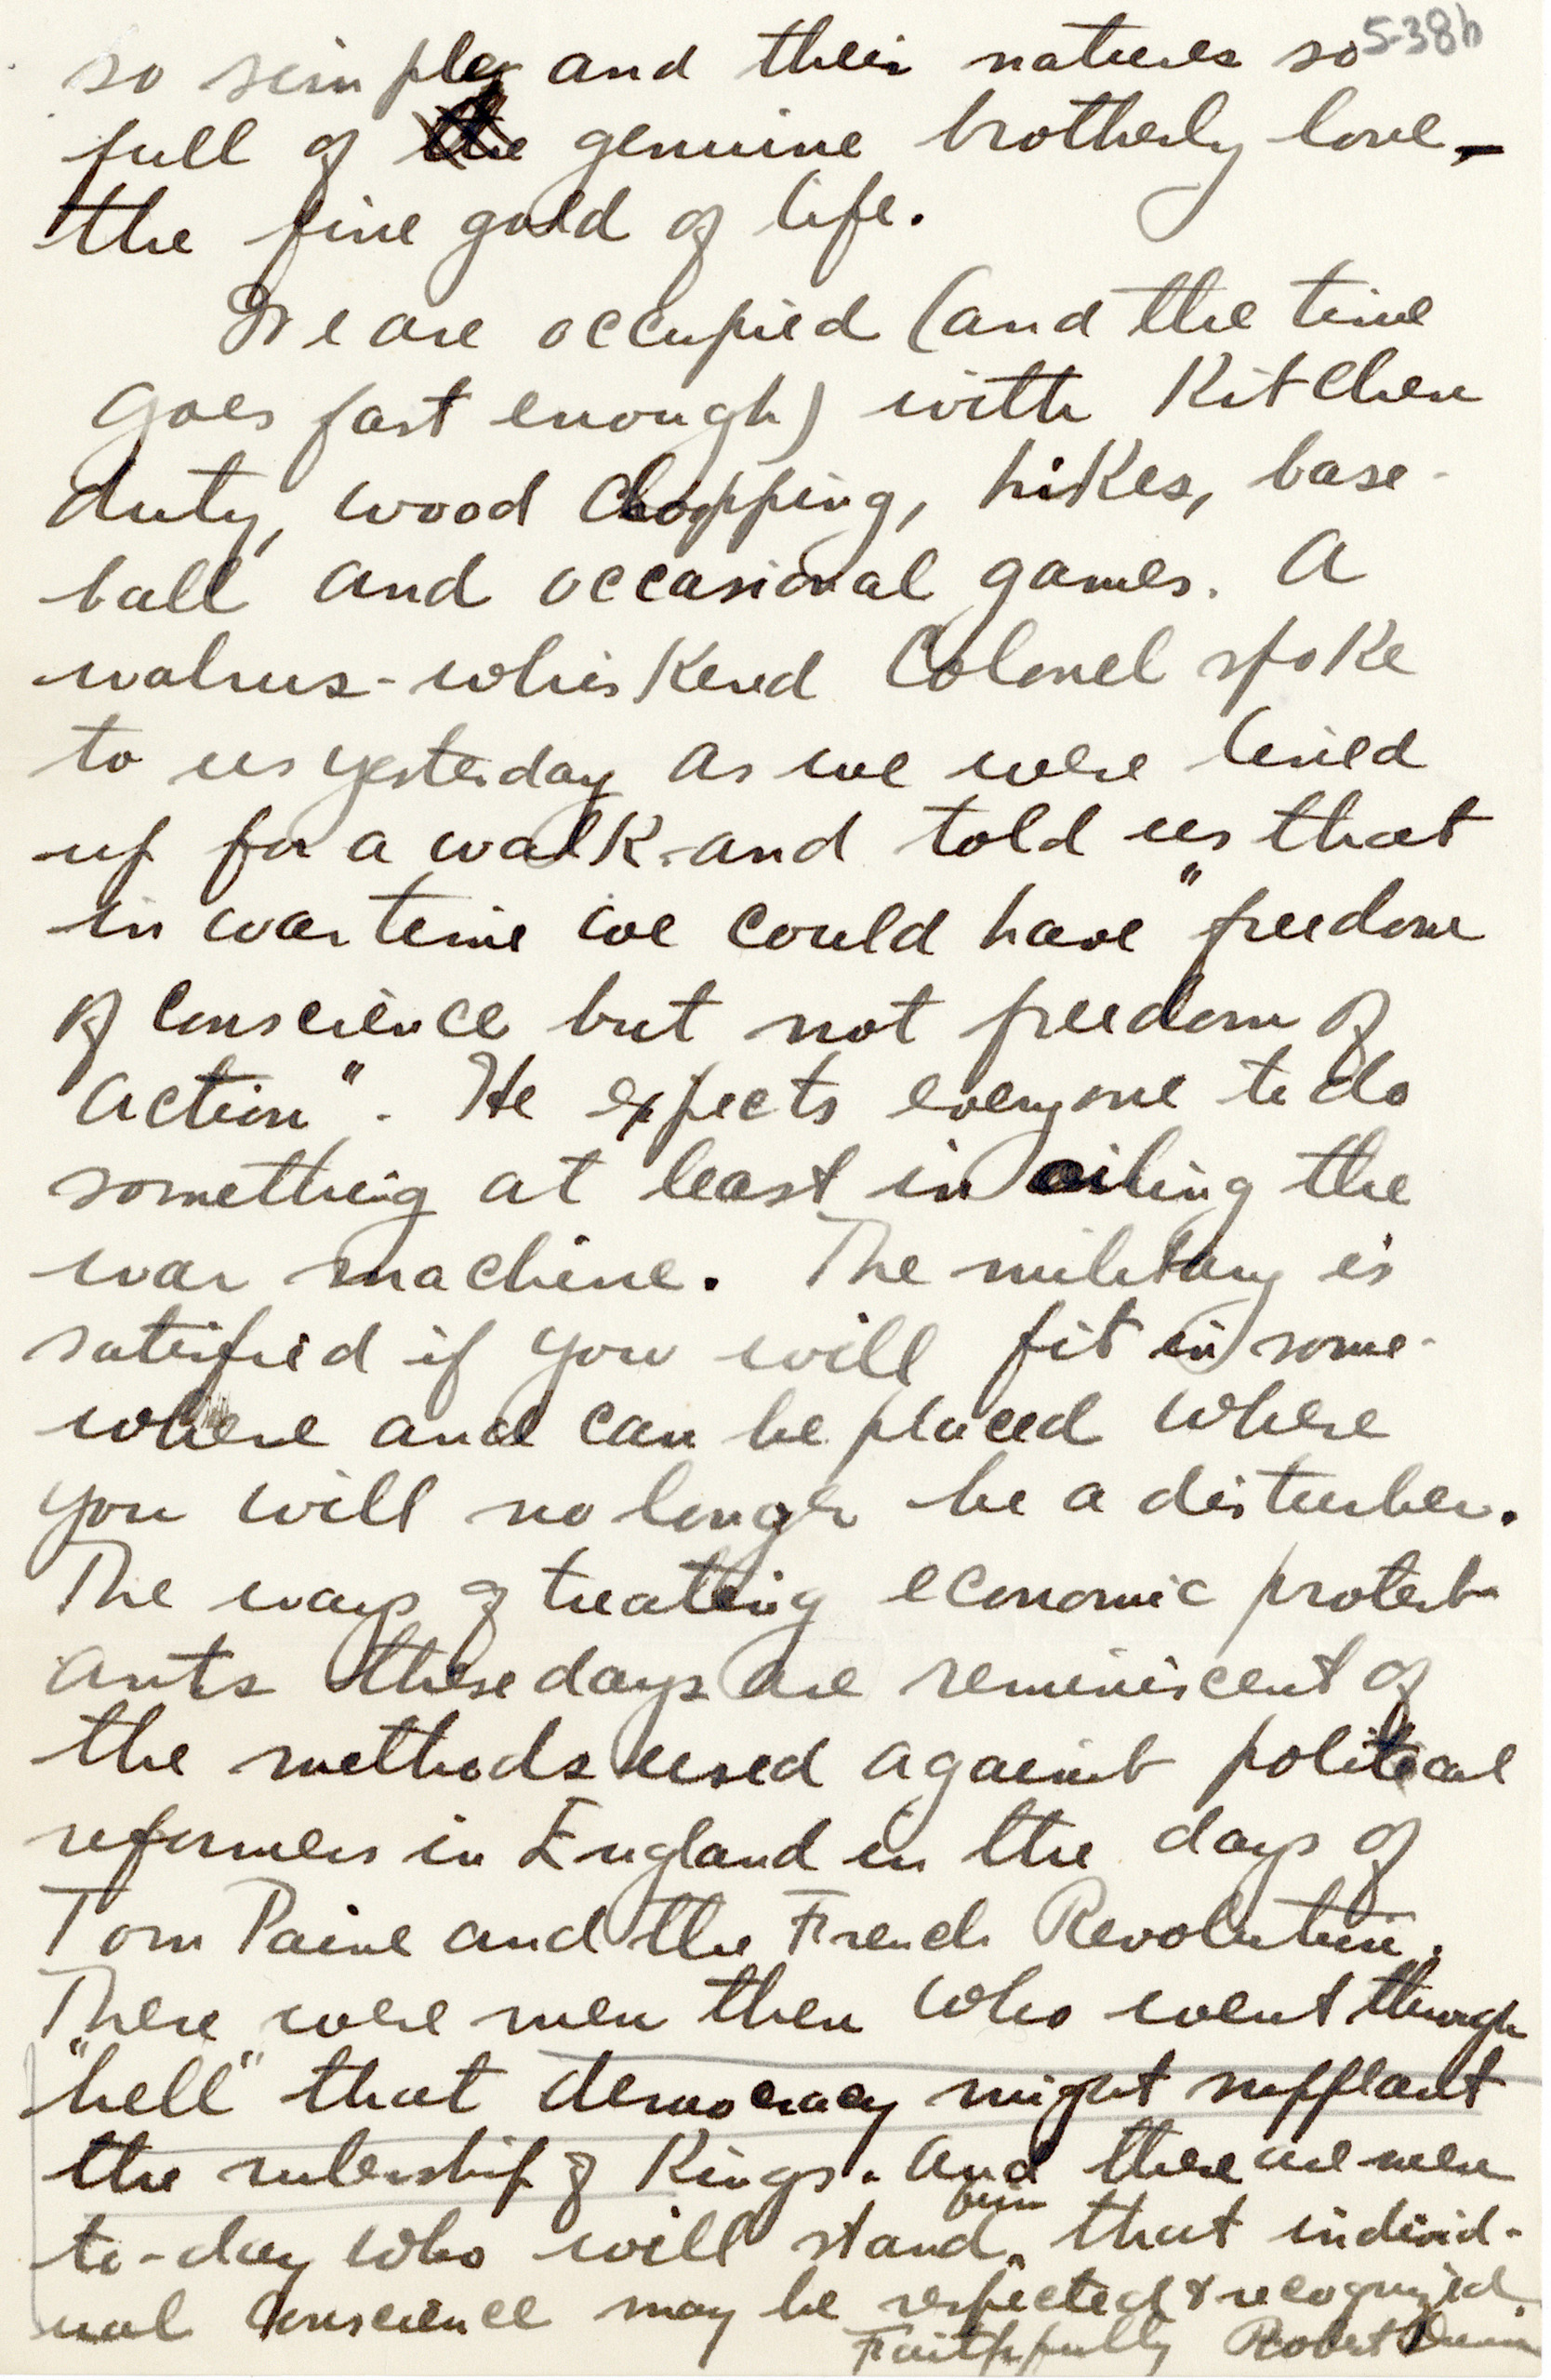 5-38b
so simple and their natures so
full of the genuine brotherly love,-
the fine gold of life.
We are occupied (and the time
goes fast enough) with Kitchen
duty, wood chopping, hikes, base-
ball and occasional games. A
walrus-whiskered Colonel spoke
to us yesterday as we were lined
up for a walk and told us that
in war time we could have "freedom
of conscience but not freedom of
action". He expects everyone to do
something at least in oiling the
war machine. The military is
satisfied if you will fit in some-
where and can be placed where
you will no longer be a disturber.
The ways of treating economic protest-
ants these days are reminiscent of
the methods used against political
reformers in England in the days of
Tom Paine and the French Revolution.
There were men then who went through
"hell" that democracy might supplant
the rulership of Kings. And there are men
to-day who will stand firm that individ-
ual conscience may be respected & recognized.
Faithfully Robert Dunn